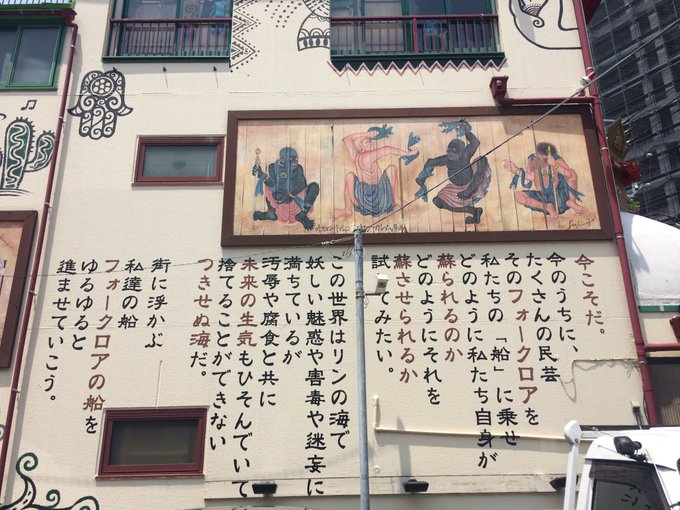 今こそだ。
今のうちに、
たくさんの民芸
そのフォークロアを
私たちの「船」に乗せ
どのように私たち自身が
蘇られるのか
どのようにそれを
蘇させられるか
試てみたい。
この世界はリンの海で
妖しい魅惑や害毒や迷妄に
満ちているが
汚辱や腐食と共に
未来の生気もひそんでいて
捨てることができない
つきせぬ海だ。
街に浮かぶ
私達の船
フォークロアの船を
ゆるゆると
進ませていこう。